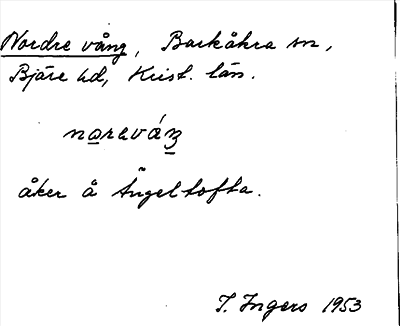 Nordre vång, Barkåkra sn,
Bjäre hd, Krist. län.
noreváŋ
åker å Ängeltofta.
I. Ingers 1953